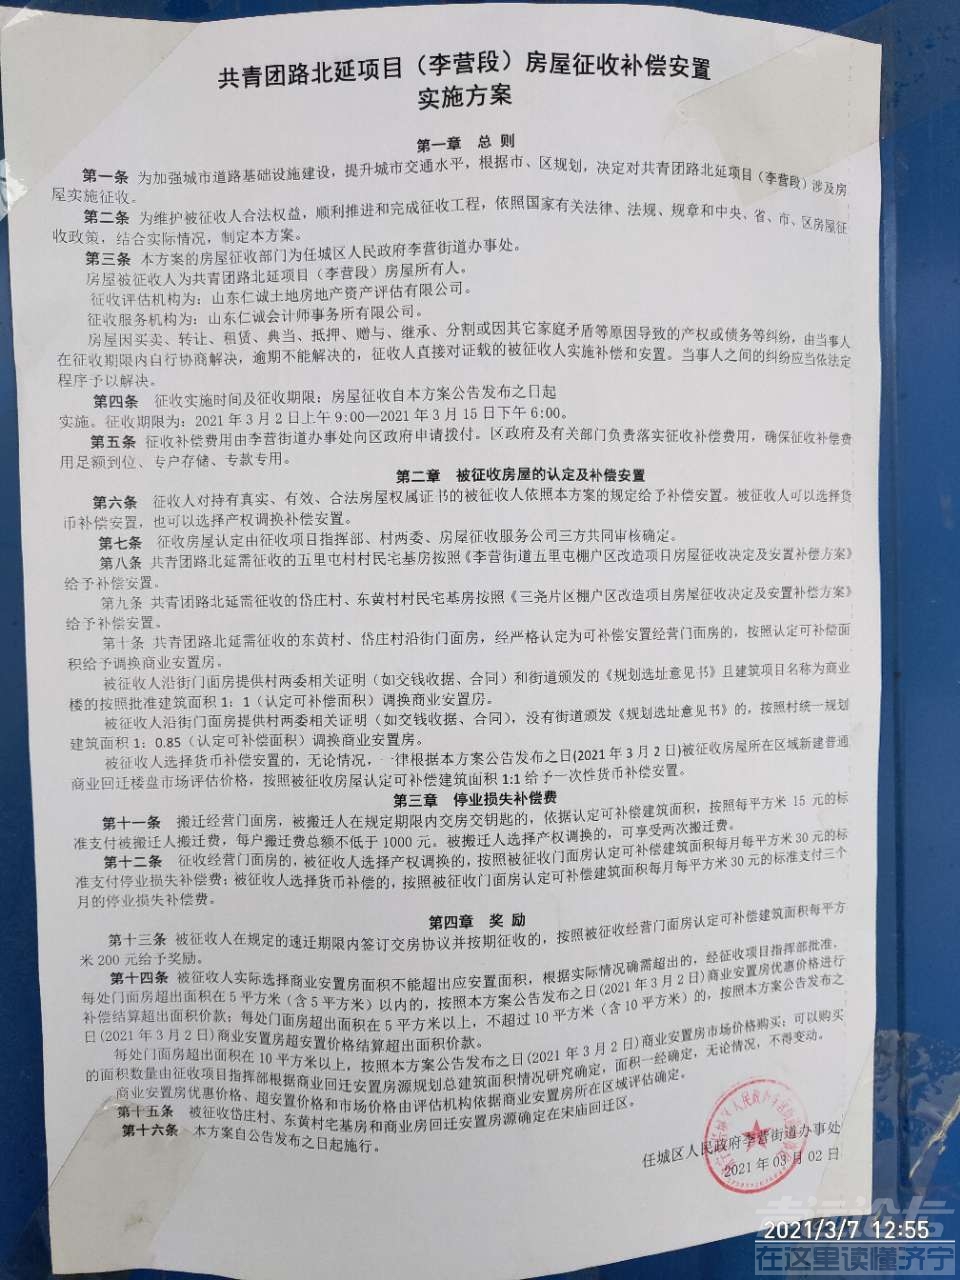 共青团路北延项目（李营段）房屋征收补偿安置
实施方案
第一章 总 则
第一条 为加强城市道路基础设施建设，提升城市交通水平，根据市、区规划，决定对共青团路北延项目（李营段）涉及房
屋实施征收。
第二条 为维护被征收人合法权益，顺利推进和完成征收工程，依照国家有关法律、法规、规章和中央、省、市、区房屋征
收政策，结合实际情况，制定本方案。
第三条 本方案的房屋征收部门为任城区人民政府李营街道办事处。
房屋被征收人为共青团路北延项目（李营段）房屋所有人。
征收评估机构为：山东仁诚土地房地产资产评估有限公司。
征收服务机构为：山东仁诚会计师事务所有限公司。
房屋因买卖、转让、租赁、典当、抵押、赠与、继承、分割或因其它家庭矛盾等原因导致的产权或债务等纠纷，由当事人
在征收期限内自行协商解决，逾期不能解决的，征收人直接对证载的被征收人实施补偿和安置。当事人之间的纠纷应当依法定
程序予以解决。
第四条 征收实施时间及征收期限：房屋征收自本方案公告发布之日起
实施。征收期限为：2021年3月2日上午9:00—2021年3月15日下午6:00。
第五条 征收补偿费用由李营街道办事处向区政府申请拨付。区政府及有关部门负责落实征收补偿费用，确保征收补偿费
用足额到位、专户存储、专款专用。
第二章 被征收房屋的认定及补偿安置
第六条 征收人对持有真实、有效、合法房屋权属证书的被征收人依照本方案的规定给予补偿安置。被征收人可以选择货
币补偿安置，也可以选择产权调换补偿安置。
第七条 征收房屋认定由征收项目指挥部、村两委、房屋征收服务公司三方共同审核确定。
第八条 共青团路北延需征收的五里屯村村民宅基房按照《李营街道五里屯棚户区改造项目房屋征收决定及安置补偿方案》
给予补偿安置。
第九条 共青团路北延需征收的岱庄村、东黄村村民宅基房按照《三尧片区棚户区改造项目房屋征收决定及安置补偿方案》
给予补偿安置。
第十条 共青团路北延需征收的东黄村、岱庄村沿街门面房，经严格认定为可补偿安置经营门面房的，按照认定可补偿面
积给予调换商业安置房。
被征收人沿街门面房提供村两委相关证明（如交钱收据、合同）和街道颁发的《规划选址意见书》且建筑项目名称为商业
楼的按照批准建筑面积1：1（认定可补偿面积）调换商业安置房。
被征收人沿街门面房提供村两委相关证明（如交钱收据、合同），没有街道颁发《规划选址意见书》的，按照村统一规划
建筑面积1：0.85（认定可补偿面积）调换商业安置房。
被征收人选择货币补偿安置的，无论情况，一律根据本方案公告发布之日(2021年3月2日)被征收房屋所在区域新建普通
商业回迁楼盘市场评估价格，按照被征收房屋认定可补偿建筑面积1:1给予一次性货币补偿安置。
第三章 停业损失补偿费
第十一条 搬迁经营门面房，被搬迁人在规定期限内交房交钥匙的，依据认定可补偿建筑面积，按照每平方米15元的标
准支付被搬迁人搬迁费，每户搬迁费总额不低于1000元。被搬迁人选择产权调换的，可享受两次搬迁费。
第十二条 征收经营门面房的，被征收人选择产权调换的，按照被征收门面房认定可补偿建筑面积每月每平方米30元的标
准支付停业损失补偿费；被征收人选择货币补偿的，按照被征收门面房认定可补偿建筑面积每月每平方米30元的标准支付三个
月的停业损失补偿费。
第四章 奖 励
第十三条 被征收人在规定的速迁期限内签订交房协议并按期征收的，按照被征收经营门面房认定可补偿建筑面积每平方
米200元给予奖励。
第十四条 被征收人实际选择商业安置房面积不能超出应安置面积，根据实际情况确需超出的，经征收项目指挥部批准，
每处门面房超出面积在5平方米（含5平方米）以内的，按照本方案公告发布之日(2021年3月2日)商业安置房优惠价格进行
补偿结算超出面积价款；每处门面房超出面积在5平方米以上，不超过10平方米（含10平方米）的，按照本方案公告发布之
日(2021年3月2日)商业安置房超安置价格结算超出面积价款。
每处门面房超出面积在10平方米以上，按照本方案公告发布之日(2021年3月2日)商业安置房市场价格购买；可以购买
的面积数量由征收项目指挥部根据商业回迁安置房源规划总建筑面积情况研究确定，面积一经确定，无论情况，不得变动。
商业安置房优惠价格、超安置价格和市场价格由评估机构依据商业安置房所在区域评估确定。
第十五条 被征收岱庄村、东黄村宅基房和商业房回迁安置房源确定在宋庙回迁区。
第十六条 本方案自公告发布之日起施行。
任城区人民政府李营街道办事处
2021年03月02日
2021/3/7 12:55
在这里读懂济宁